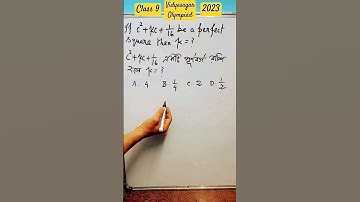 Class 9 Vidyasagar Olympiad 2023
If c²+kc+1/16 be a perfect
square then k=?
c²+kc+1/16 একটি পূর্ণবর্গ রাশি
হলে k=?
A. 4 B 1/4 C 2 D 1/2